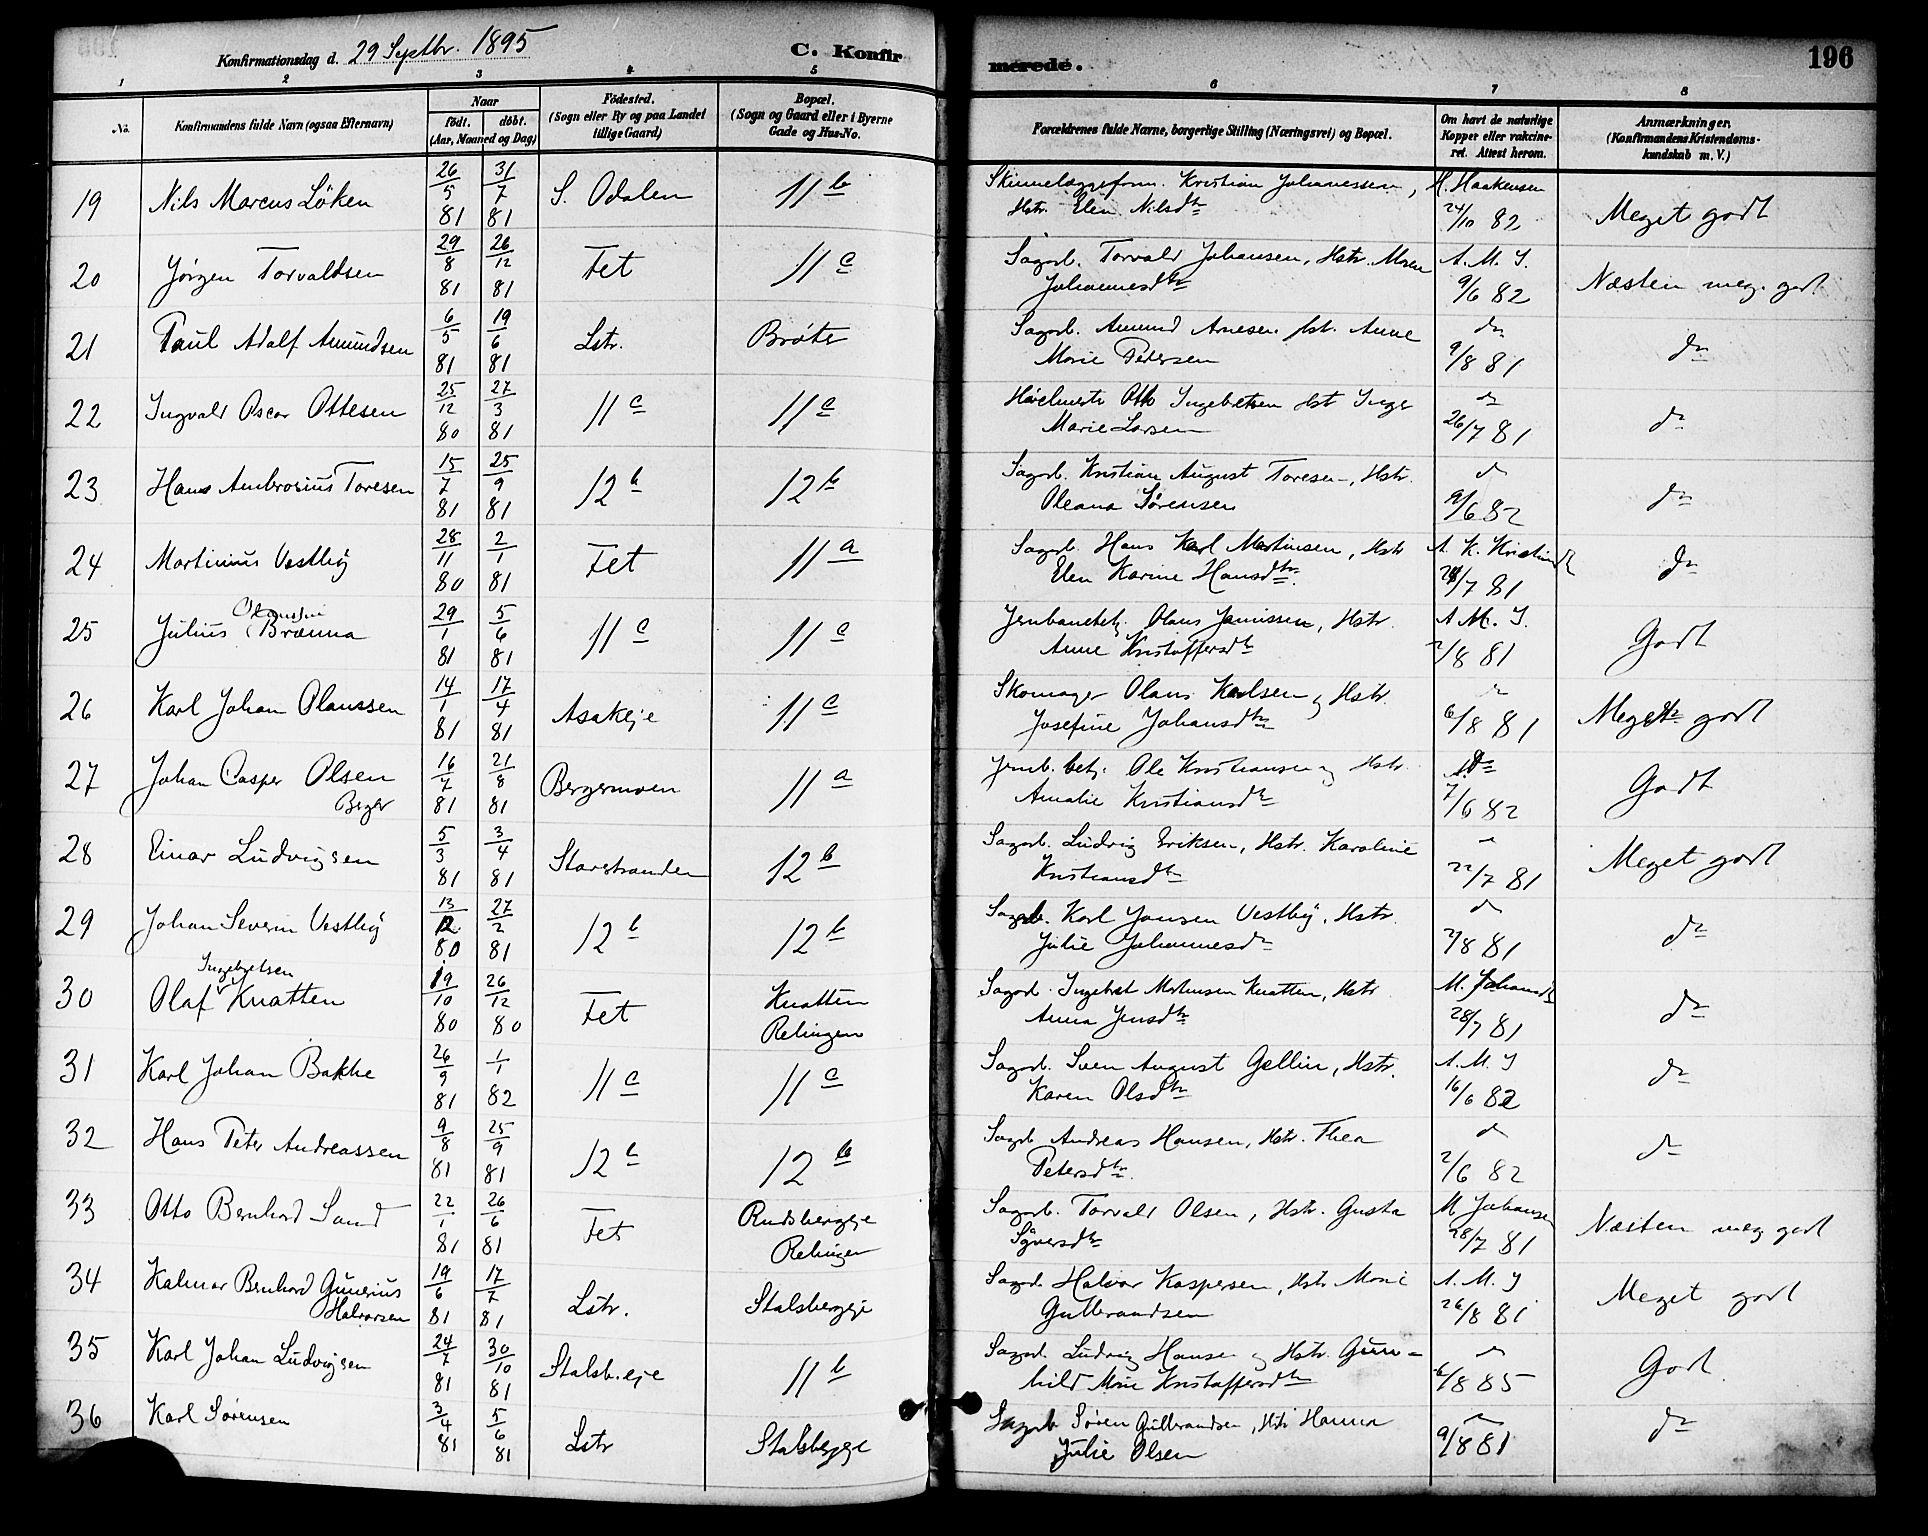 Konfirmationsdag d. 29 Septbr. 1895
C. Konfir
merede.
196
1 2 3 4 5 6 7 8
No.
Konfirmandens fulde Navn (ogsaa Efternavn)
Naar
födt. döbt.
(Aar, Maaned og Dag)
Födested.
(Sogn eller By og paa Landet
tillige Gaard)
Bopæl.
(Sogn og Gaard eller i Byerne
Gade og Hus-No.
Forældrenes fulde Navne, borgerlige Stilling (Næringsvei) og Bopæl.
Om havt de naturlige
Kopper eller vakcine-
ret. Attest herom.
Anmærkninger,
(Konfirmandens Kristendoms-
kundskab m. V.)
19 Nils Marcus Löken 26/5 81 31/7 81 S. Odalen 11 b Kristian Johannessen, H. Haakensen
Hstr. Elen Nilsdtr 24/10 82 Meget godt
20 Jörgen Torvaldsen 29/8 81 26/12 81 Fet 11 c Sagarb. Torvald Johansen, Hstr. Maren A. M. J.
Johannesdtr 9/6 82 Næsten meg. godt
21 Paul Adolf Amundsen 6/5 81 19/6 81 Lstr. Bråte Sagarb. Amund Arnesen Hst. Anne do
Marie Petersen 9/8 81 do
22 Ingvald Oscar Ottesen 25/12 80 27/3 81 11 c 11 c Hövelmester Otto Ingebretsen Hst Inger do
Marie Larsen 26/7 81 do
23 Hans Ambrosius Toresen 15/7 81 25/9 81 12 b 12 b Sagarb. Kristian August Toresen, Hstr. do
Oleana Sörensen 9/6 82 do
24 Martinius Vestby 28/11 80 2/1 81 Fet 11 a Sagarb. Hans Karl Martinsen, Hstr A. K. Kristiansdtr
Elen Karine Hansdtr. 28/7 81 do
25 Julius Olaussen Brænna 29/1 81 5/6 81 11 c 11 c Jernbanebetj. Olaus Jamissen, Hstr. A. M. J.
Anne Kristoffersdtr 2/8 81 Godt
26 Karl Johan Olaussen 14/1 81 17/4 81 Asakeje 11 c Skomager Olaus Karlsen og Hstr. do
Josefine Johansdtr 6/8 81 Meget godt
27 Johan Casper Olsen
Berger 16/7 81 21/8 81 Bergermoen 11 a Jernb. betj. Ole Kristiansen og Hstr. do
Amalie Kristiansdtr 7/6 82 Godt
28 Einar Ludvigsen 5/3 81 3/4 81 Starstranden 12 b Sagarb. Ludvig Eriksen, Hstr. Karoline do
Kristiansdtr 22/7 81 Meget godt
29 Johan Severin Vestby 13/12 80 27/2 81 12 b 12 b Sagarb. Karl Jansen Vestby, Hstr. do
Julie Johannesdtr 2/8 81 do
30 Olaf Ingebretsen Knatten 19/10 80 26/12 80 Fet Knatten
Relingen Sagarb. Ingebret Mortensen Knatten, Hstr M. Johansdtr
Anna Jensdtr 28/7 81 do
31 Karl Johan Bakke 26/9 81 1/1 82 11 c 11 c Sagarb. Sven August Gellin, Hstr. A. M. J
Karen Olsdtr 16/6 82 do
32 Hans Peter Andreassen 9/8 81 25/9 81 12 b 12 b Sagarb Andreas Hansen, Hstr. Thea do
Petersdtr. 2/6 82 do
33 Otto Bernhard Sand 22/1 81 26/6 81 Fet Rudsbergeje
Relingen Sagarb. Torvald Olsen, Hstr. Gusta M Johansen
Syversdtr 28/7 81 Næsten meg godt
34 Halmar Bernhard Gunerius
Halvorsen 19/6 81 17/7 81 Lstr. Stalsbergeje Sagarb. Halvor Kaspersen, Hstr Marie A. M. J
Gulbrandsen 26/8 81 Meget godt
35 Karl Johan Ludvigsen 24/7 81 30/10 81 Stalsb.eje 11 b Sagarb. Ludvig Hansen og Hstr. Gun-
hild Marie Kristoffersdtr 6/8 85 Godt
36 Karl Sörensen 3/4 81 5/6 81 Lstr Stalsbergeje Sagarb Sören Gulbrandsen, Hstr Hanna
Julie Olsen 9/8 81 do